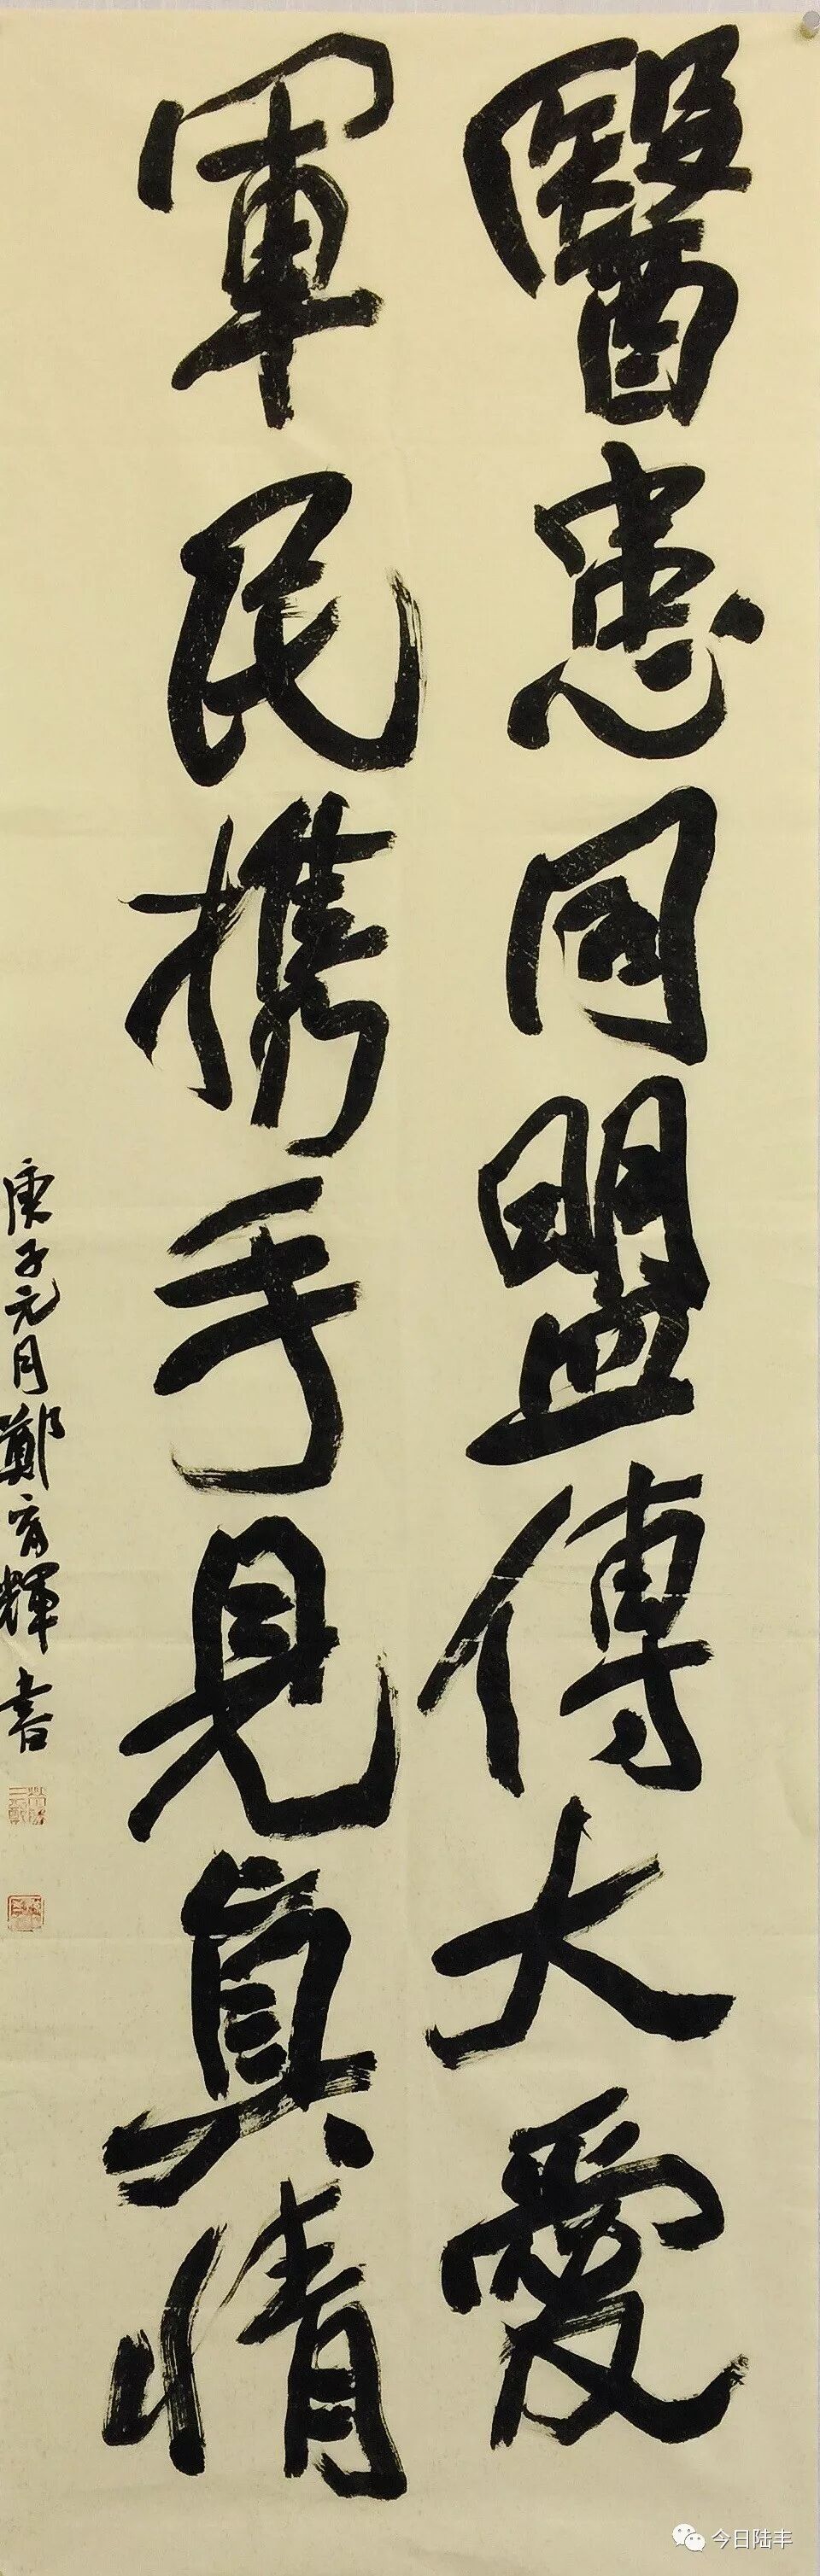 醫患同盟傳大愛
軍民携手見真情
庚子元月鄭育輝書
今日陆丰